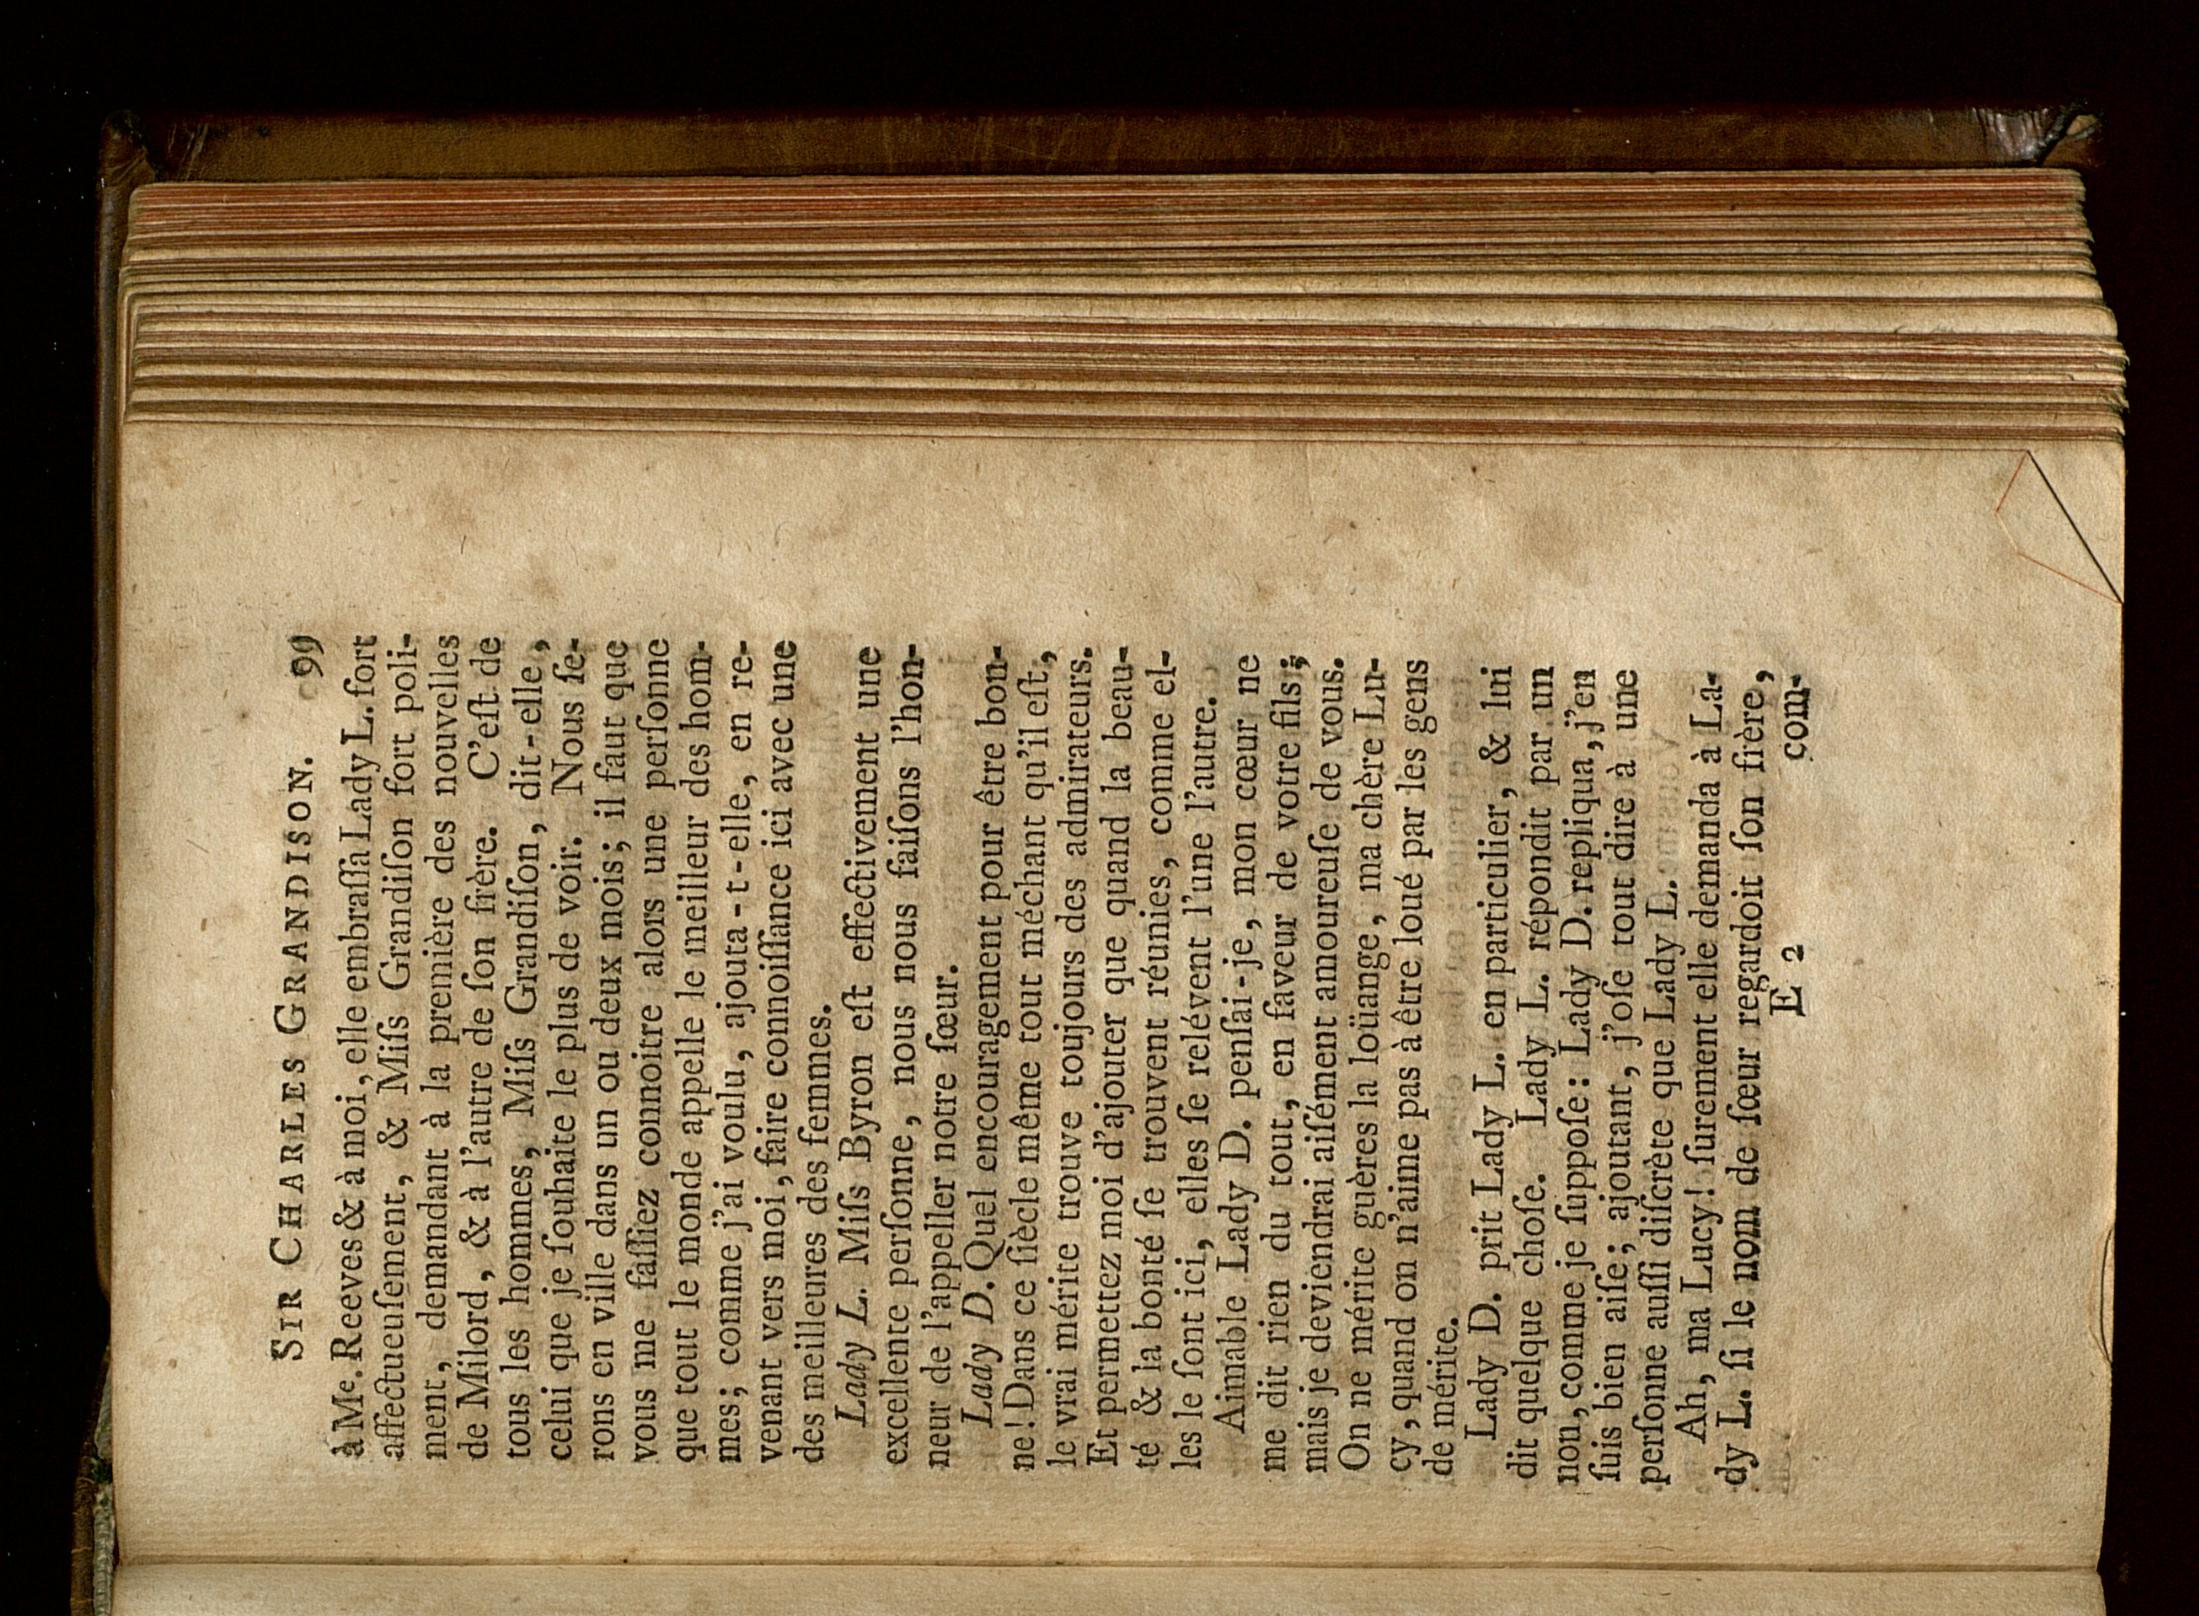 SIR CHARLES GRANDISON. 99
à Mᵉ. Reeves & à moi, elle embraſſa Lady L. fort
affectueuſement, & Miſs Grandiſon fort poli-
ment, demandant à la première des nouvelles
de Milord, & à l'autre de ſon frère. C'eſt de
tous les hommes, Miſs Grandiſon, dit-elle,
celui que je ſouhaite le plus de voir. Nous ſe-
rons en ville dans un ou deux mois; il faut que
vous me faſſiez connoitre alors une perſonne
que tout le monde appelle le meilleur des hom-
mes; comme j'ai voulu, ajouta-t-elle, en re-
venant vers moi, faire connoiſſance ici avec une
des meilleures des femmes.
Lady L. Miſs Byron eſt effectivement une
excellente perſonne, nous nous faiſons l'hon-
neur de l'appeller notre ſœur.
Lady D. Quel encouragement pour être bon-
ne! Dans ce ſiècle même tout méchant qu'il eſt,
le vrai mérite trouve toujours des admirateurs.
Et permettez moi d'ajouter que quand la beau-
té & la bonté ſe trouvent réunies, comme el-
les le ſont ici, elles ſe relévent l'une l'autre.
Aimable Lady D. penſai-je, mon cœur ne
me dit rien du tout, en faveur de votre fils;
mais je deviendrai aiſément amoureuſe de vous.
On ne mérite guères la loüange, ma chère Lu-
cy, quand on n'aime pas à être loué par les gens
de mérite.
Lady D. prit Lady L. en particulier, & lui
dit quelque choſe. Lady L. répondit par un
non, comme je ſuppoſe: Lady D. repliqua, j'en
ſuis bien aiſe; ajoutant, j'oſe tout dire à une
perſonne auſſi diſcrète que Lady L.
Ah, ma Lucy! ſurement elle demanda à La-
dy L. ſi le nom de ſœur regardoit ſon fière,
E 2 com-